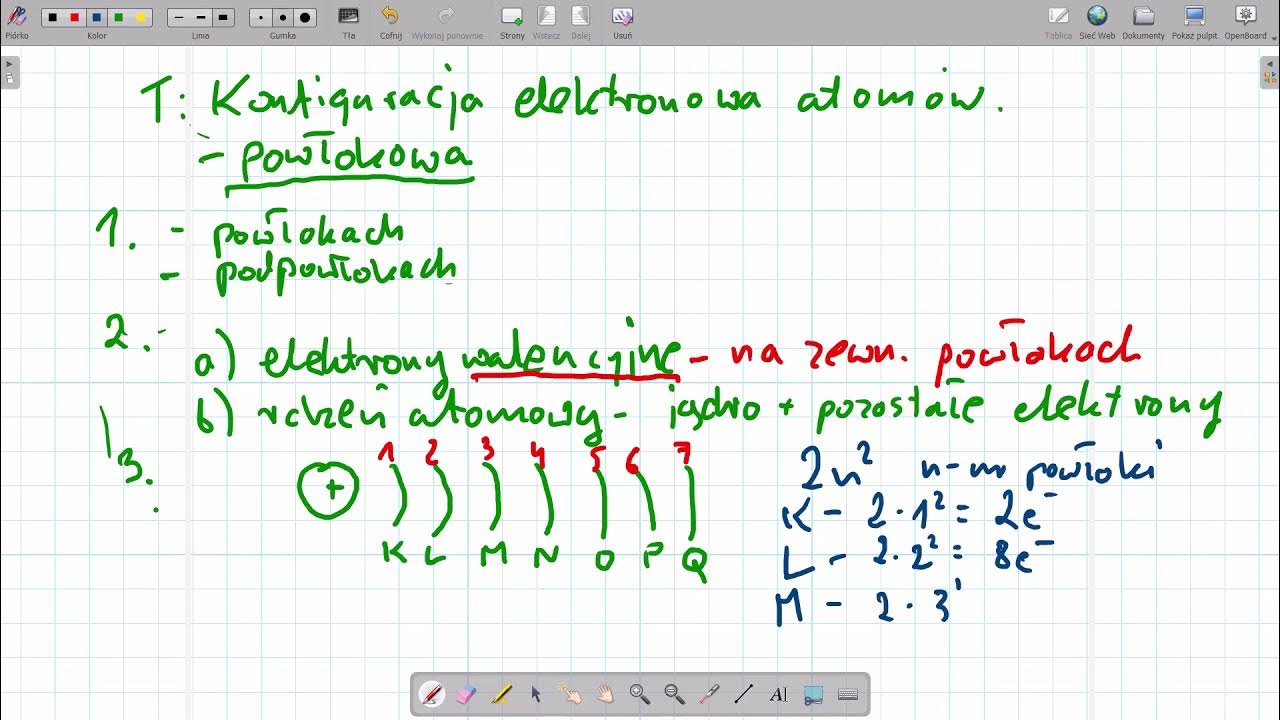 Piórko Kolor Linia Gumka Tła Cofnij Wykonaj ponownie Strony Wstecz Dalej Usuń Tablica Sieć Web Dokumenty Pokaż pulpit OpenBoard
T: Konfiguracja elektronowa atomów.
- powłokowa
1. - powłokach
- podpowłokach
2.
a) elektrony walencyjne - na zewn. powłokach
b) rdzeń atomowy - jądro + pozostałe elektrony
3.
+
1 2 3 4 5 6 7
K L M N O P Q
2n² n-nr powłoki
K - 2·1² = 2e⁻
L - 2·2² = 8e⁻
M - 2·3
AI